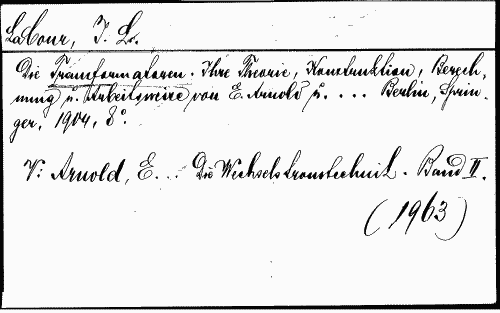 LaCour, J. L.
Die Transformatoren. Ihre Theorie, Konstruktion, Berech-
nung u. Arbeitsweise von E. Arnold u. .... Berlin, Sprin-
ger, 1904, 8°.
V: Arnold, E... Die Wechselstromtechnik. Band II.
(1963)